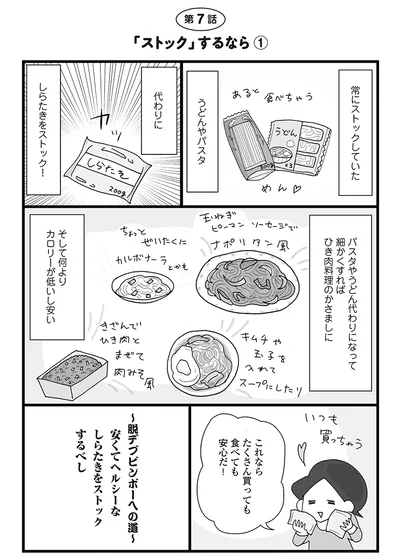 第7話
「ストック」するなら①
常にストックしていた
あると食べちゃう
うどん
×3
めん♡
うどんやパスタ
代わりに
カッ
しらたき
200g
しらたきをストック!
パスタやうどん代わりになって
細かくすれば
ひき肉料理のかさましに
玉ねぎ
ピーマン ソーセージで
ナポリタン風
ちょっと
ぜいたくに
カルボナーラ
とかも
キムチや
玉子を
入れて
スープにしたり
きざんで
ひき肉と
まぜて
肉みそ風
そして何より
カロリーが低いし安い
いつも
買っちゃう
これなら
たくさん買っても
食べても
安心だ!
〜脱デブビンボーへの道〜
安くてヘルシーな
しらたきをストック
するべし